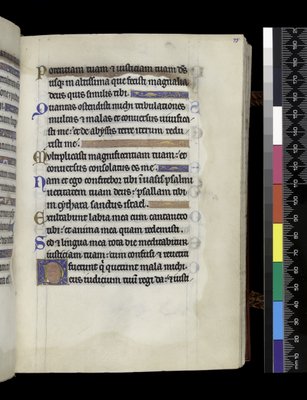 77
Potentiam tuam et iusticiam tuam deus
usque in altissima que fecisti magnalia
deus quis similis tibi
Quantas ostendisti michi tribulationes
multas et malas et conuersus uiuifica
sti me et de abyssis terre iterum redu
xisti me
Multiplicasti magnificentiam tuam et
conuersus consolatus es me
Nam et ego confitebor tibi in uasis psalmi
ueritatem tuam deus psallam tibi
in cythara sanctus israel
Exultabunt labia mea cum cantauero
tibi et anima mea quam redemisti
Sed et lingua mea tota die meditabitur
iusticiam tuam cum confusi et reueriti
fuerint qui querunt mala michi
Deus iudicium tuum regi da et iusti